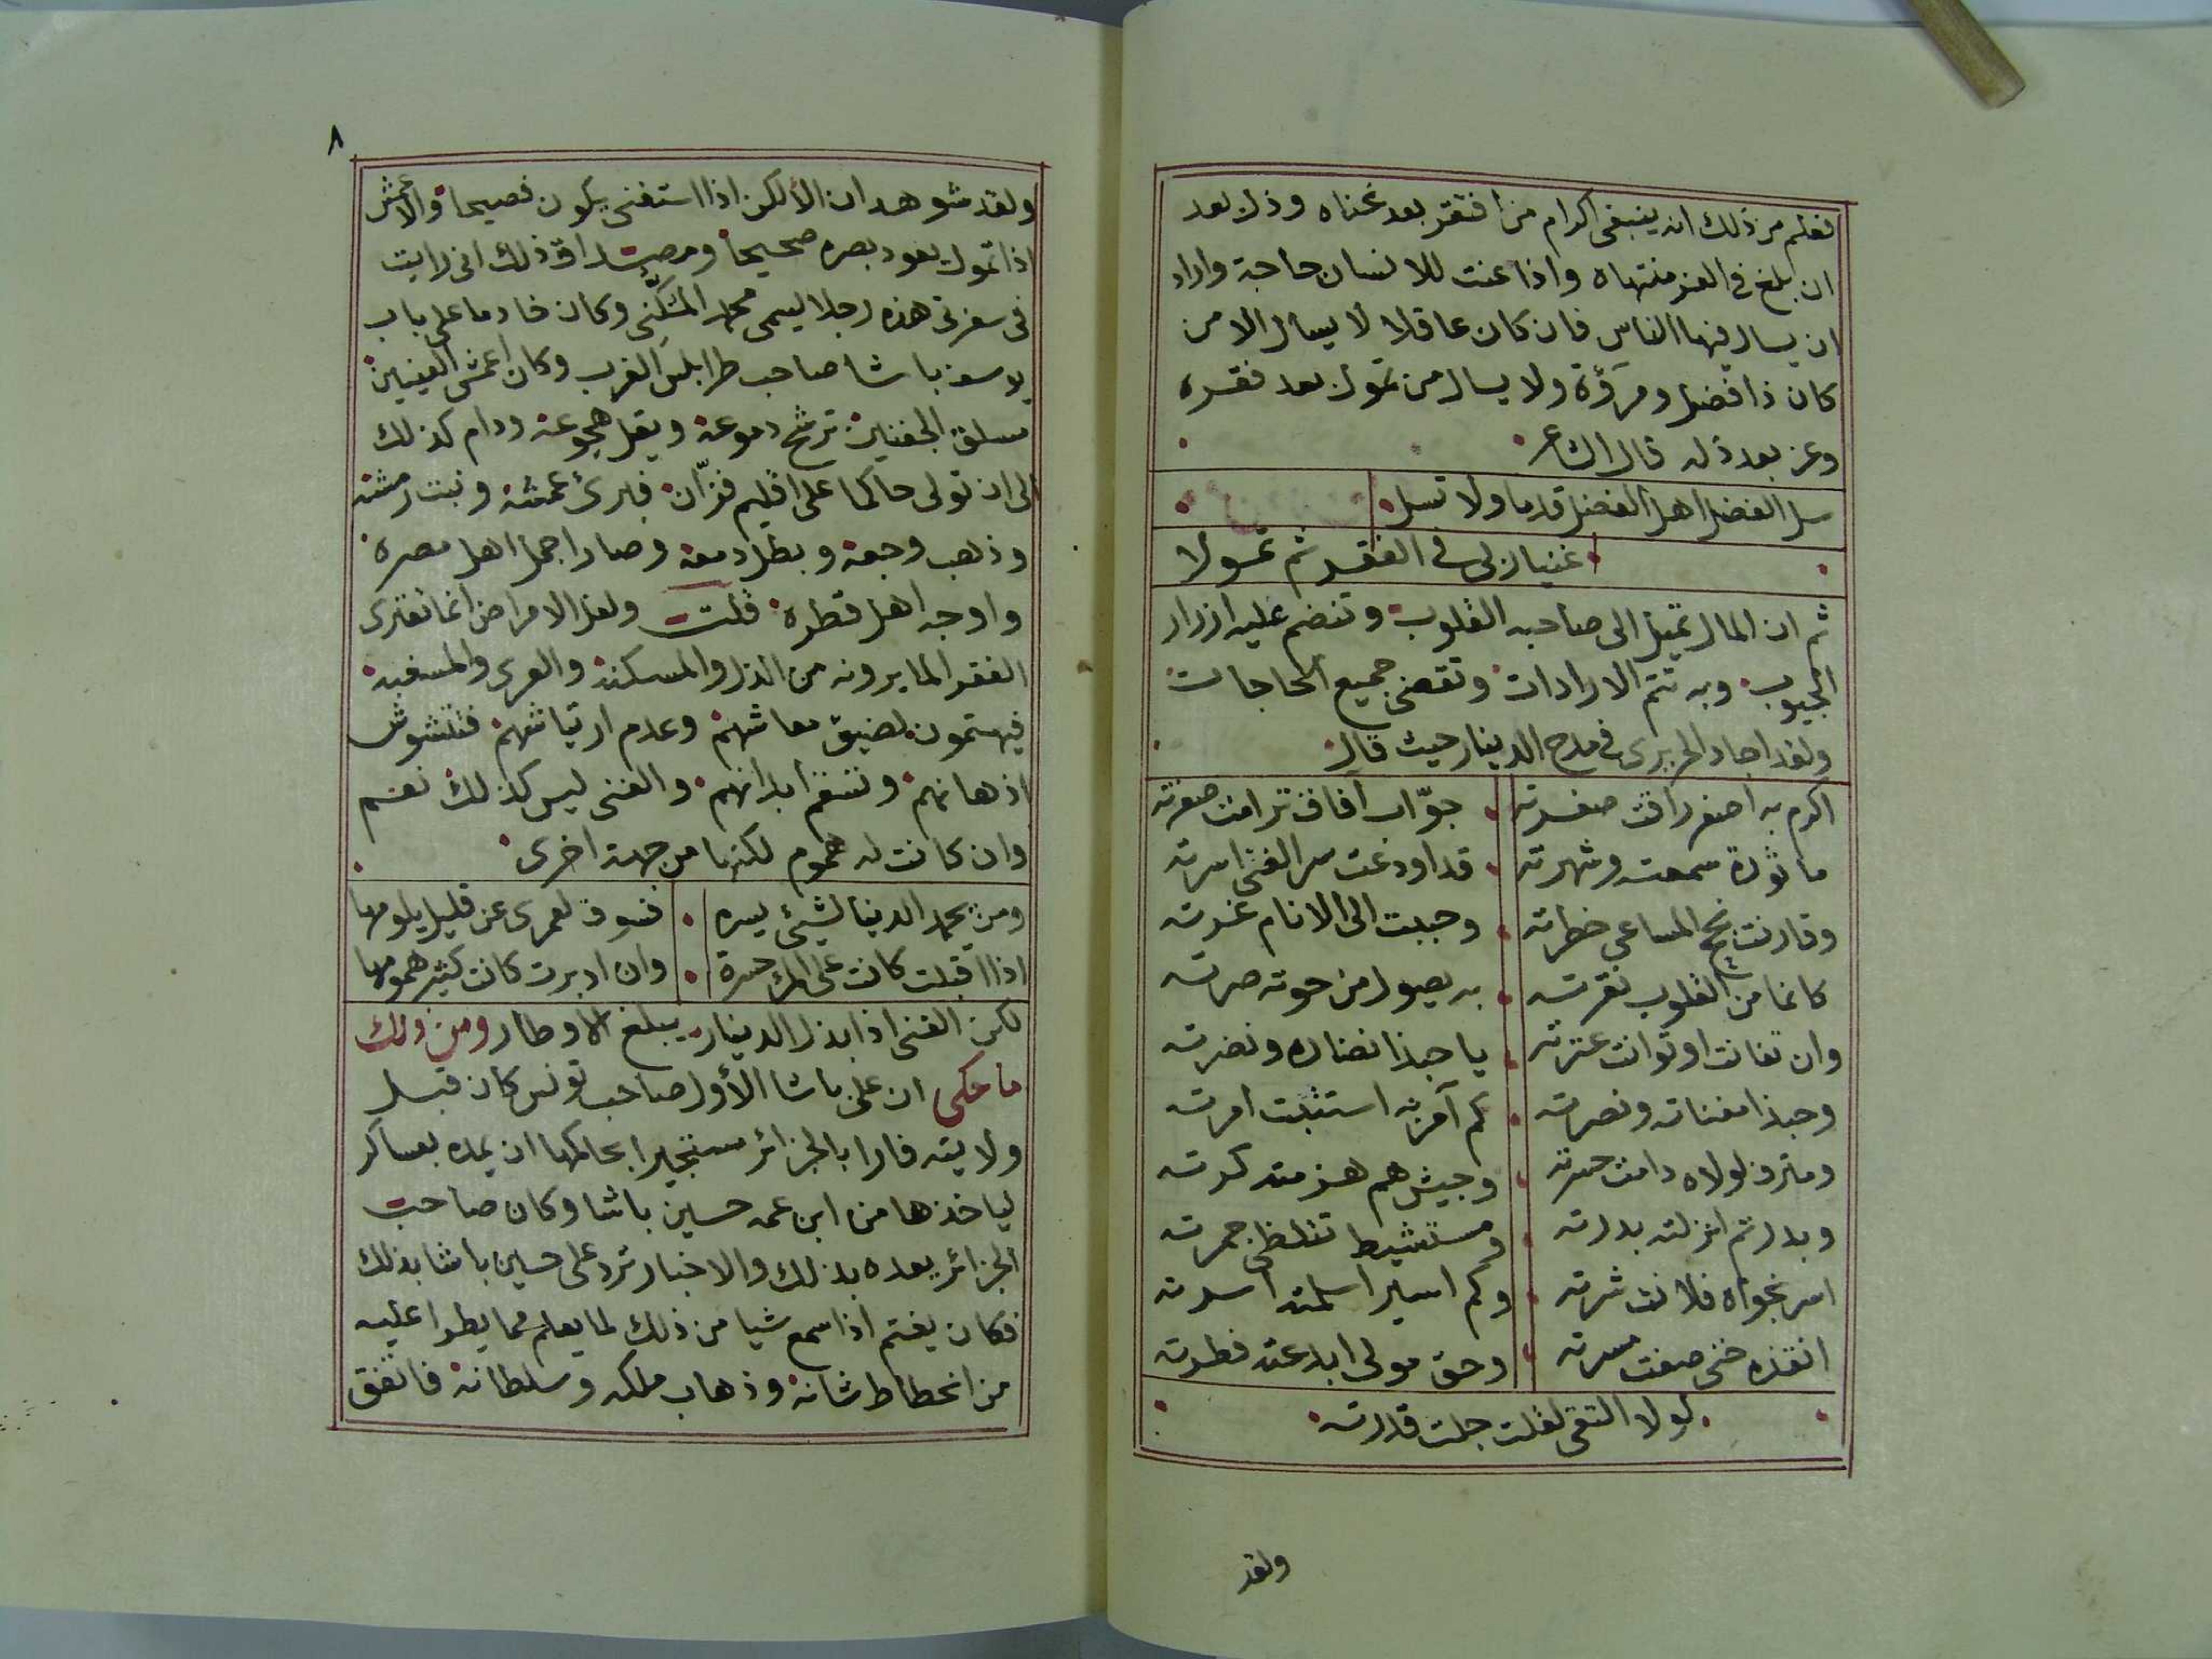 فعلم من ذلك انه ينبغي اكرام من افتقر بعد غناه وذل بعد
ان بلغ في العز منتهاه واذا عنت للانسان حاجة واراد
ان يسال فيها الناس فان كان عاقلا لا يسال الا من
كان ذا فضل ومروّة ولا يسال من تمول بعد فقره
وعز بعد ذله قال الشاعر
سل الفضل اهل الفضل قدما ولا تسل
غنيا ربى في الفقر ثم تمولا
ثم ان المال تميل الى صاحبه القلوب وتنضم عليه ازرار
الجيوب وبه تتم الارادات وتقضى جميع الحاجات
ولقد اجاد الحريرى في مدح الدينار حيث قال
اكرم به اصفر راقت صفرته جوّاب آفاق ترامت سفرته
ماثورة سمعته وشهرته قد اودعت سر الغنى اسرته
وقارنت نجح المساعي خطرته وحببت الى الانام غرته
كانما من القلوب نقرته به يصول من حوته صرته
وان تفانت او توانت عترته يا حبذا نضاره ونضرته
وحبذا مغناته ونصرته كم آمر به استتبت امرته
ومترف لولاه دامت حسرته وجيش هم هزمته كرته
وبدر تم انزلته بدرته ومستشيط تتلظى جمرته
اسر نجواه فلانت شرته وكم اسير اسلمته اسرته
انقذه حتى صفت مسرته وحق مولى ابدعته فطرته
لولا التقى لقلت جلت قدرته
ولقد
٨
ولقد شوهد ان الألكن اذا استغنى يكون فصيحا والاعمش
اذا تمول يعود بصره صحيحا ومصداق ذلك انى رايت
فى سفرتى هذه رجلا يسمى محمد المكنّى وكان خادما على باب
يوسف باشا صاحب طرابلس الغرب وكان اعمش العينين
مسلق الجفنين ترشح دموعه ويقل هجوعه ودام كذلك
الى ان تولى حاكما على اقليم فزّان فبرئ عمشه ونبت رمشه
وذهب وجعه وبطل دمعه وصار اجمل اهل مصره
واوجه اهل قطره قلت ولعل الامراض انما تعترى
الفقرا لما يرونه من الذل والمسكنة والعرى والمسغبه
فيهتمون لضيق معاشهم وعدم ارتياشهم فتتشوش
اذهانهم وتسقم ابدانهم والغنى ليس كذلك نعم
وان كانت له هموم لكنها من جهة اخرى
ومن يحمد الدنيا لشيئ يسره فسوف لعمرى عن قليل يلومها
اذا اقبلت كانت على المرء حسرة وان ادبرت كانت كثير همومها
لكن الغنى اذا بذل الدينار يبلغ الاوطار ومن ذلك
ما حكى ان على باشا الأول صاحب تونس كان قبل
ولايته فارا بالجزائر مستجيرا بحاكمها ان يمده بعساكر
لياخذها من ابن عمه حسين باشا وكان صاحب
الجزائر يعده بذلك والاخبار ترد على حسين باشا بذلك
فكان يغتم اذا سمع شيا من ذلك لما يعلم مما يطرا عليه
من انحطاط شانه وذهاب ملكه وسلطانه فاتفق